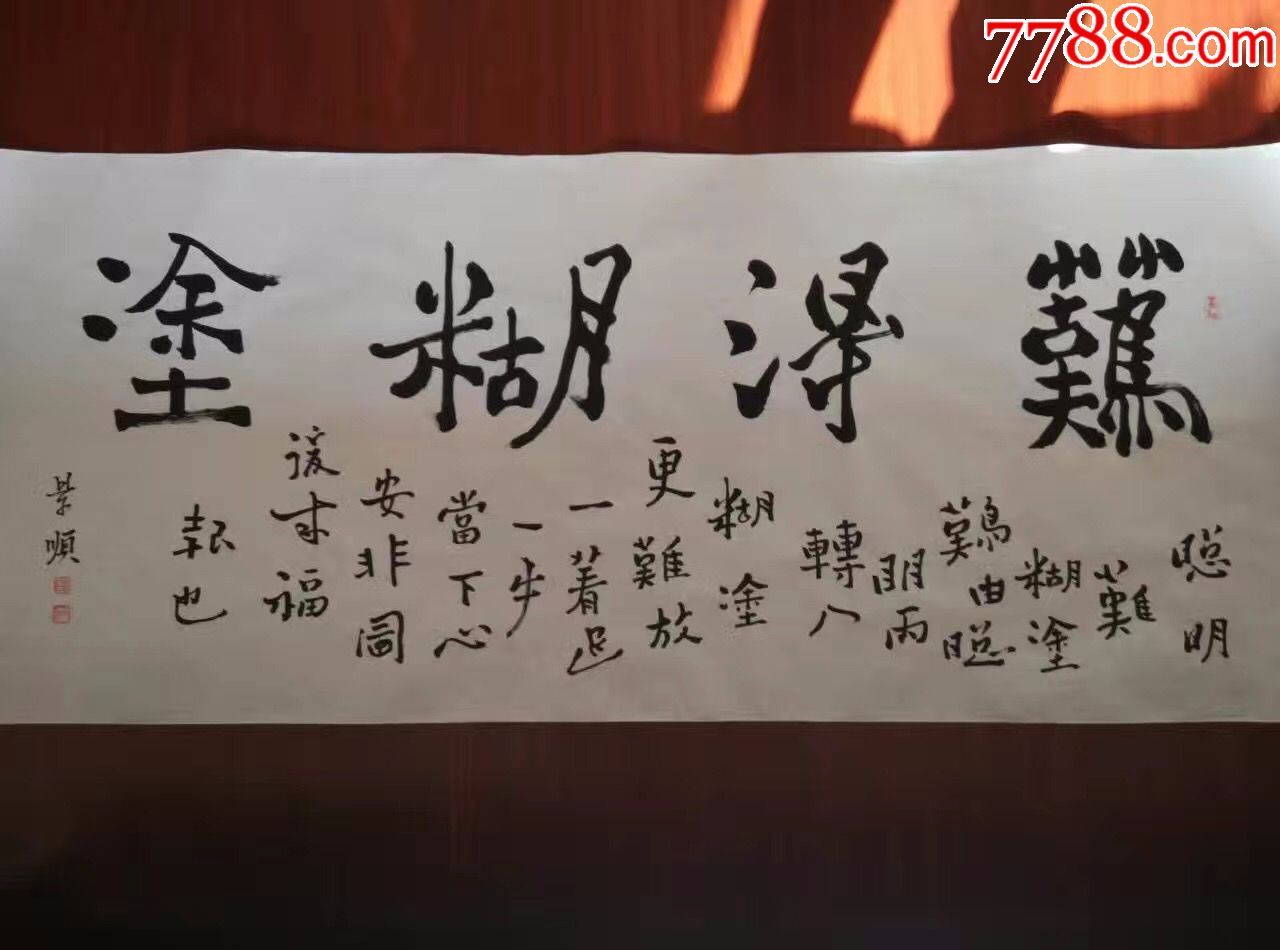 7788.com
難得糊塗
聰明
難
糊塗
難由聰
明而
轉入
糊塗
更難放
一着退
一步
當下心
安非圖
後来福
報也
景順